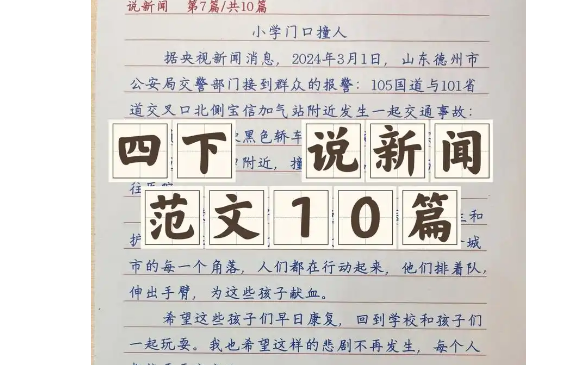 说新闻 第7篇/共10篇
小学门口撞人
据央视新闻消息，2024年3月1日，山东德州市
公安局交警部门接到群众的报警：105国道与101省
道交叉口北侧宝信加气站附近发生一起交通事故：
黑色轿车
四下 说新闻
附近，撞
往医院
范文10篇
和
护
城
市的每一个角落，人们都在行动起来，他们排着队，
伸出手臂，为这些孩子献血。
希望这些孩子们早日康复，回到学校和孩子们
一起玩耍。我也希望这样的悲剧不再发生，每个人